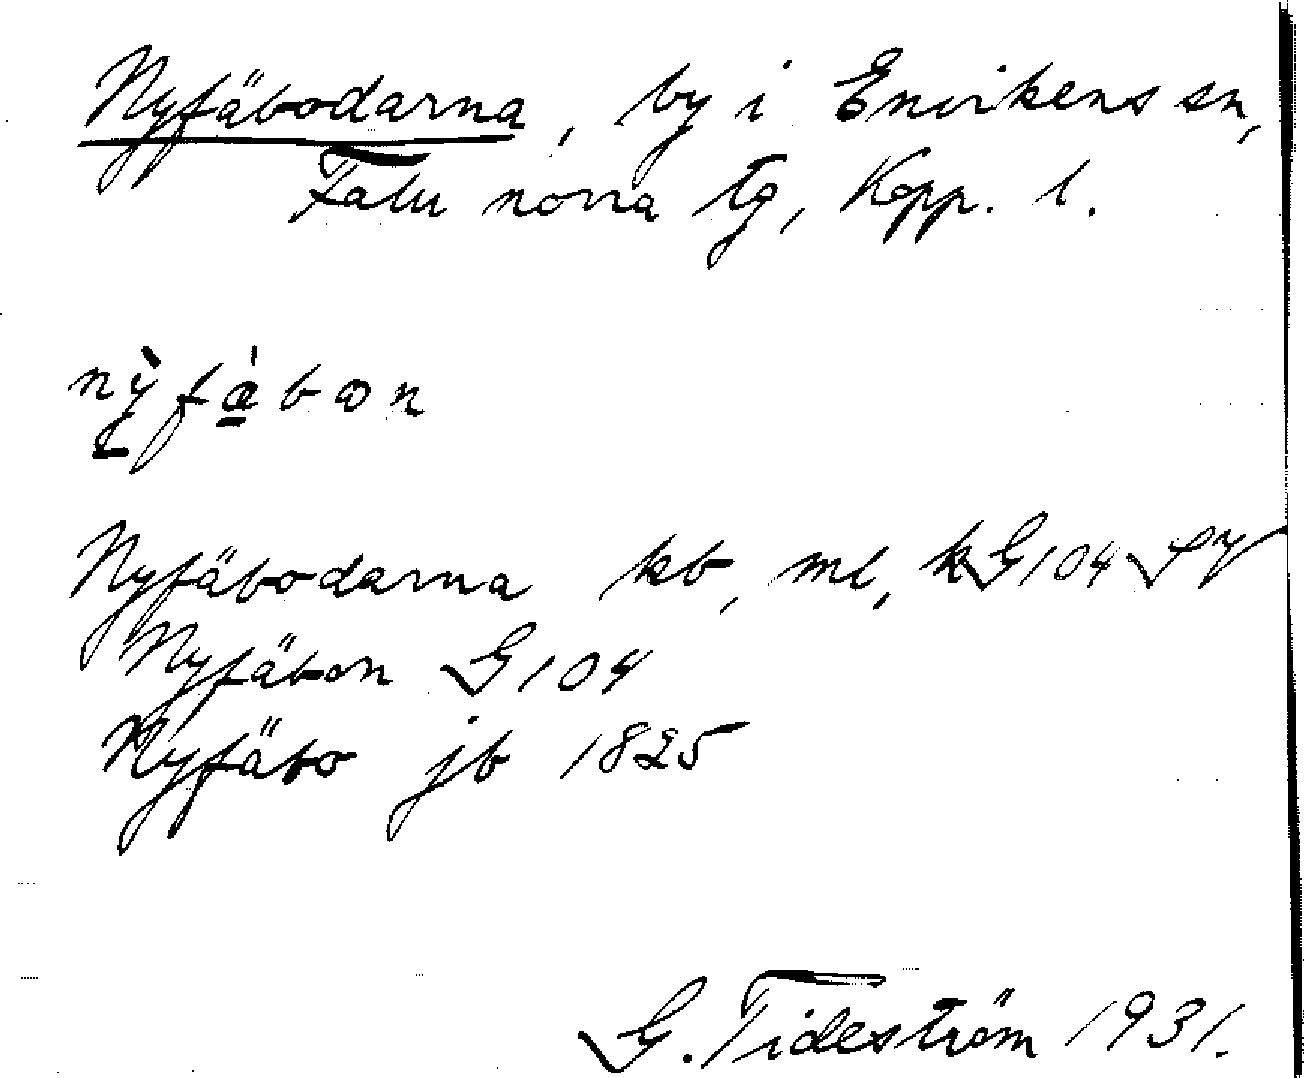 Nyfäbodarna, by i Envikens sn,
Falu norra tg, Kopp. l.
nỳfǽbon
Nyfäbodarna kb, ml, k G104 SV
Nyfäbon G104
Nyfäbo jb 1825
G. Tideström 1931.